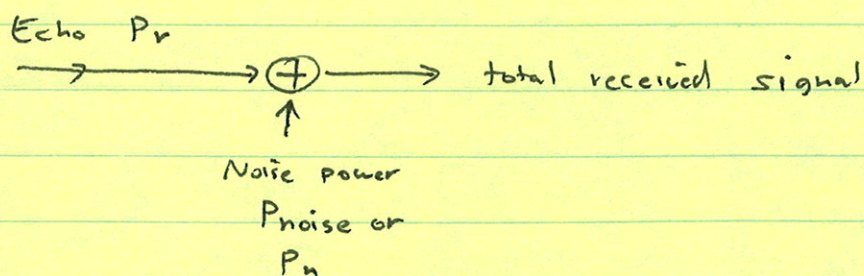 Echo Pr
+ total received signal
Noise power
Pnoise or
Pn